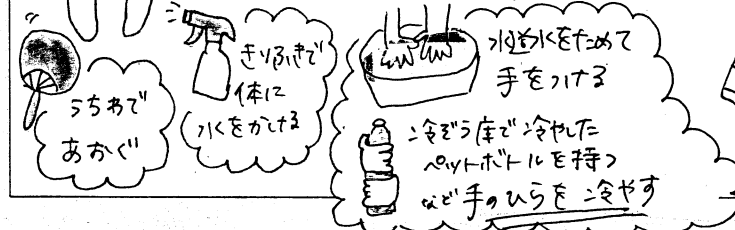 うちわで
あおぐ
きりふきで
体に
水をかける
水道水をためて
手をつける
冷ぞう庫で冷やした
ペットボトルを持つ
など手のひらを冷やす